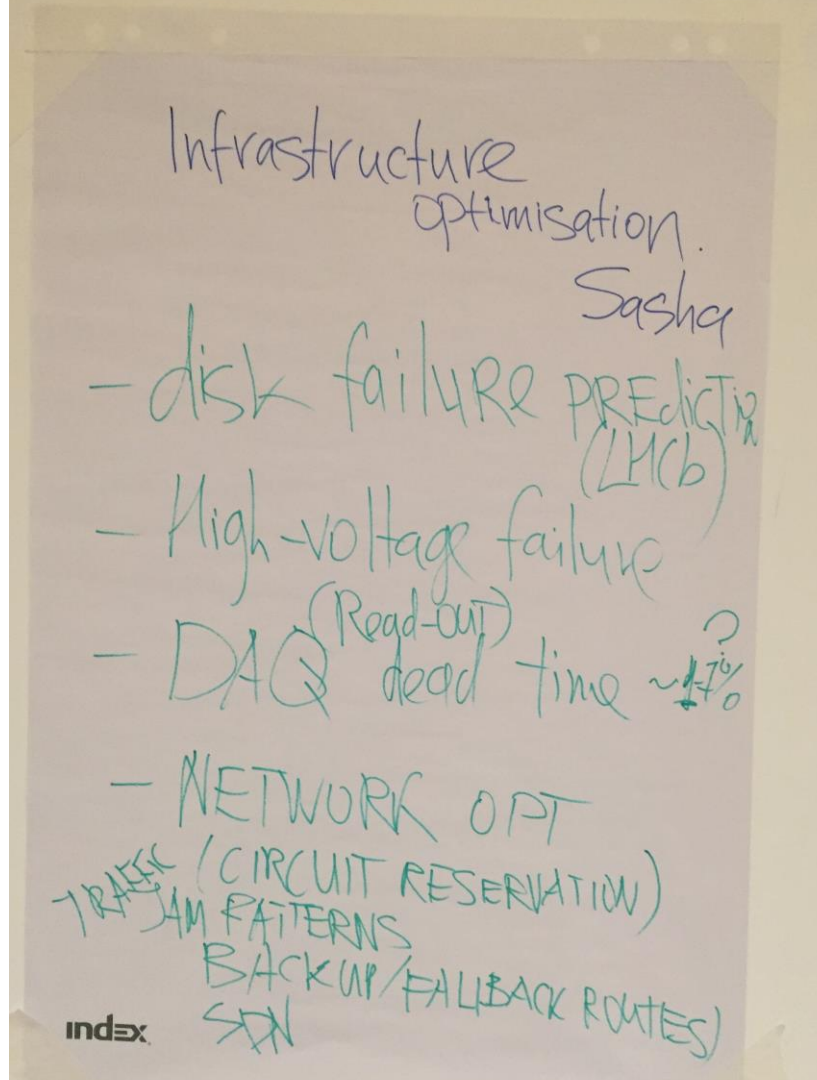 Infrastructure
optimisation.
Sasha
- disk failURe PREdicTion
(LHCb)
- High-voltage failure
(Read-OUT)
- DAQ dead time ~ %
?
- NETWORK OPT
(CIRCUIT RESERVATION)
TRAFFIC JAM PATTERNS
BACKUP/FALLBACK ROUTES)
SDN
index